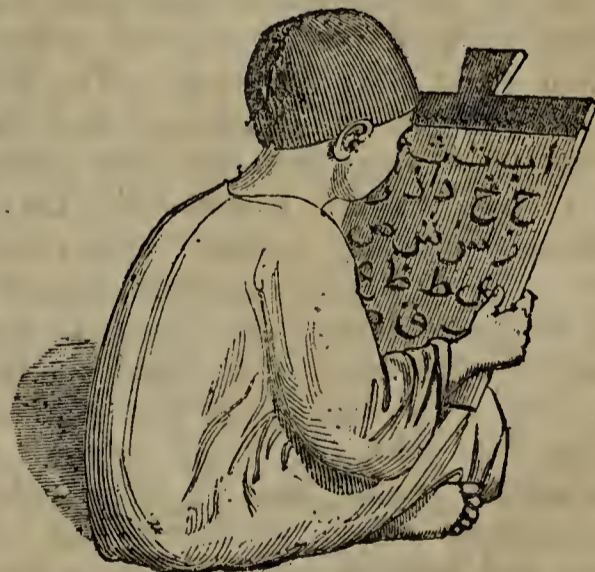 ا ب ت ث
ح خ د ذ
ز س ش ص
ض ط ظ ع
ق